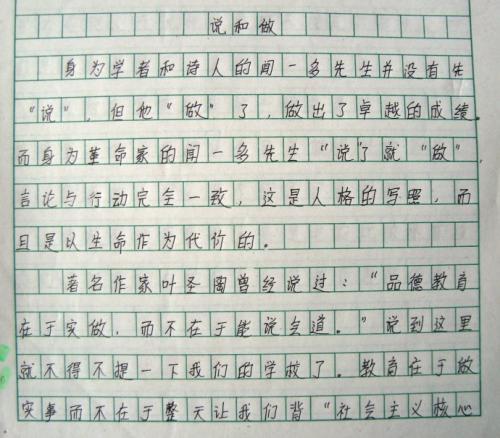 说和做
身为学者和诗人的闻一多先生并没有先
“说”，但他“做”了，做出了卓越的成绩。
而身为革命家的闻一多先生“说”了就“做”，
言论与行动完全一致，这是人格的写照，而
且是以生命作为代价的。
著名作家叶圣陶曾经说过：“品德教育
在于实做，而不在于能说会道。”说到这里
就不得不提一下我们的学校了。教育在于做
实事而不在于整天让我们背“社会主义核心